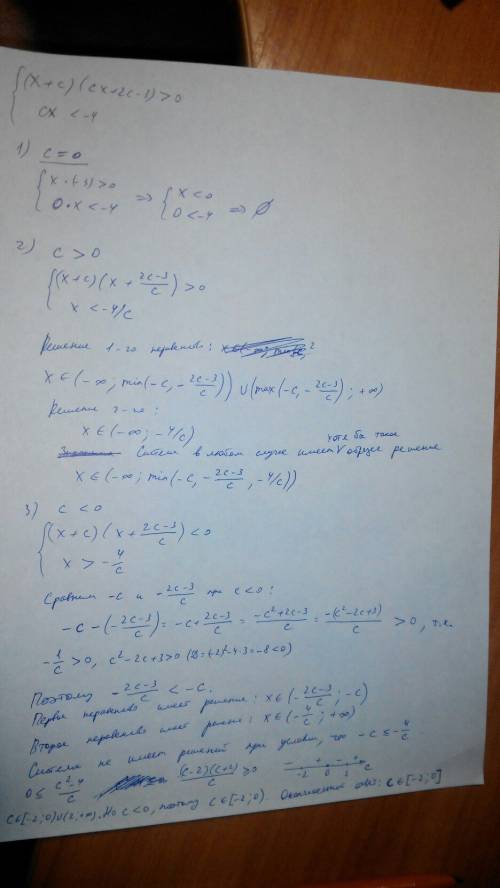 (x+c)(cx+2c-3)>0
cx < -4
1) c=0
x·(-3)>0
0·x<-4
=> x<0
0<-4 => ∅
2) c>0
(x+c)(x+\frac{2c-3}{c})>0
x < -4/c
Решение 1-го неравенства:
x∈(-∞; min(-c, -\frac{2c-3}{c})) ∪ (max(-c, -\frac{2c-3}{c}); +∞)
Решение 2-го:
x∈(-∞; -4/c)
Система в любом случае имеет хотя бы такое общее решение
x∈(-∞; min(-c, -\frac{2c-3}{c}, -4/c))
3) c<0
(x+c)(x+\frac{2c-3}{c})<0
x > -\frac{4}{c}
Сравним -c и -\frac{2c-3}{c} при c<0:
-c-(-\frac{2c-3}{c}) = -c+\frac{2c-3}{c} = \frac{-c²+2c-3}{c} = \frac{-(c²-2c+3)}{c} > 0, т.к.
-\frac{1}{c}>0, c²-2c+3>0 (D=(-2)²-4·3=-8<0)
Поэтому -\frac{2c-3}{c} < -c.
Первое неравенство имеет решение: x∈(-\frac{2c-3}{c}; -c)
Второе неравенство имеет решение: x∈(-\frac{4}{c}; +∞)
Система не имеет решений при условии, что -c ≤ -\frac{4}{c}
0 ≤ \frac{c²-4}{c} \frac{(c-2)(c+2)}{c} ≥ 0 - + - + -2 0 2 c
c∈[-2;0)∪(2;+∞). Но c<0, поэтому c∈[-2;0). Окончательный ответ: c∈[-2;0]